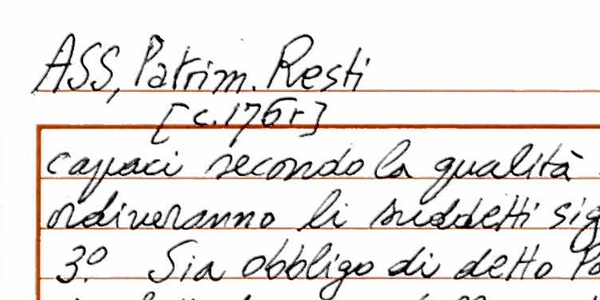 ASS, Patrim. Resti
[c.176r]
capaci secondo la qualità
ordiveranno li suddetti sig
3º Sia obbligo di detto Pa